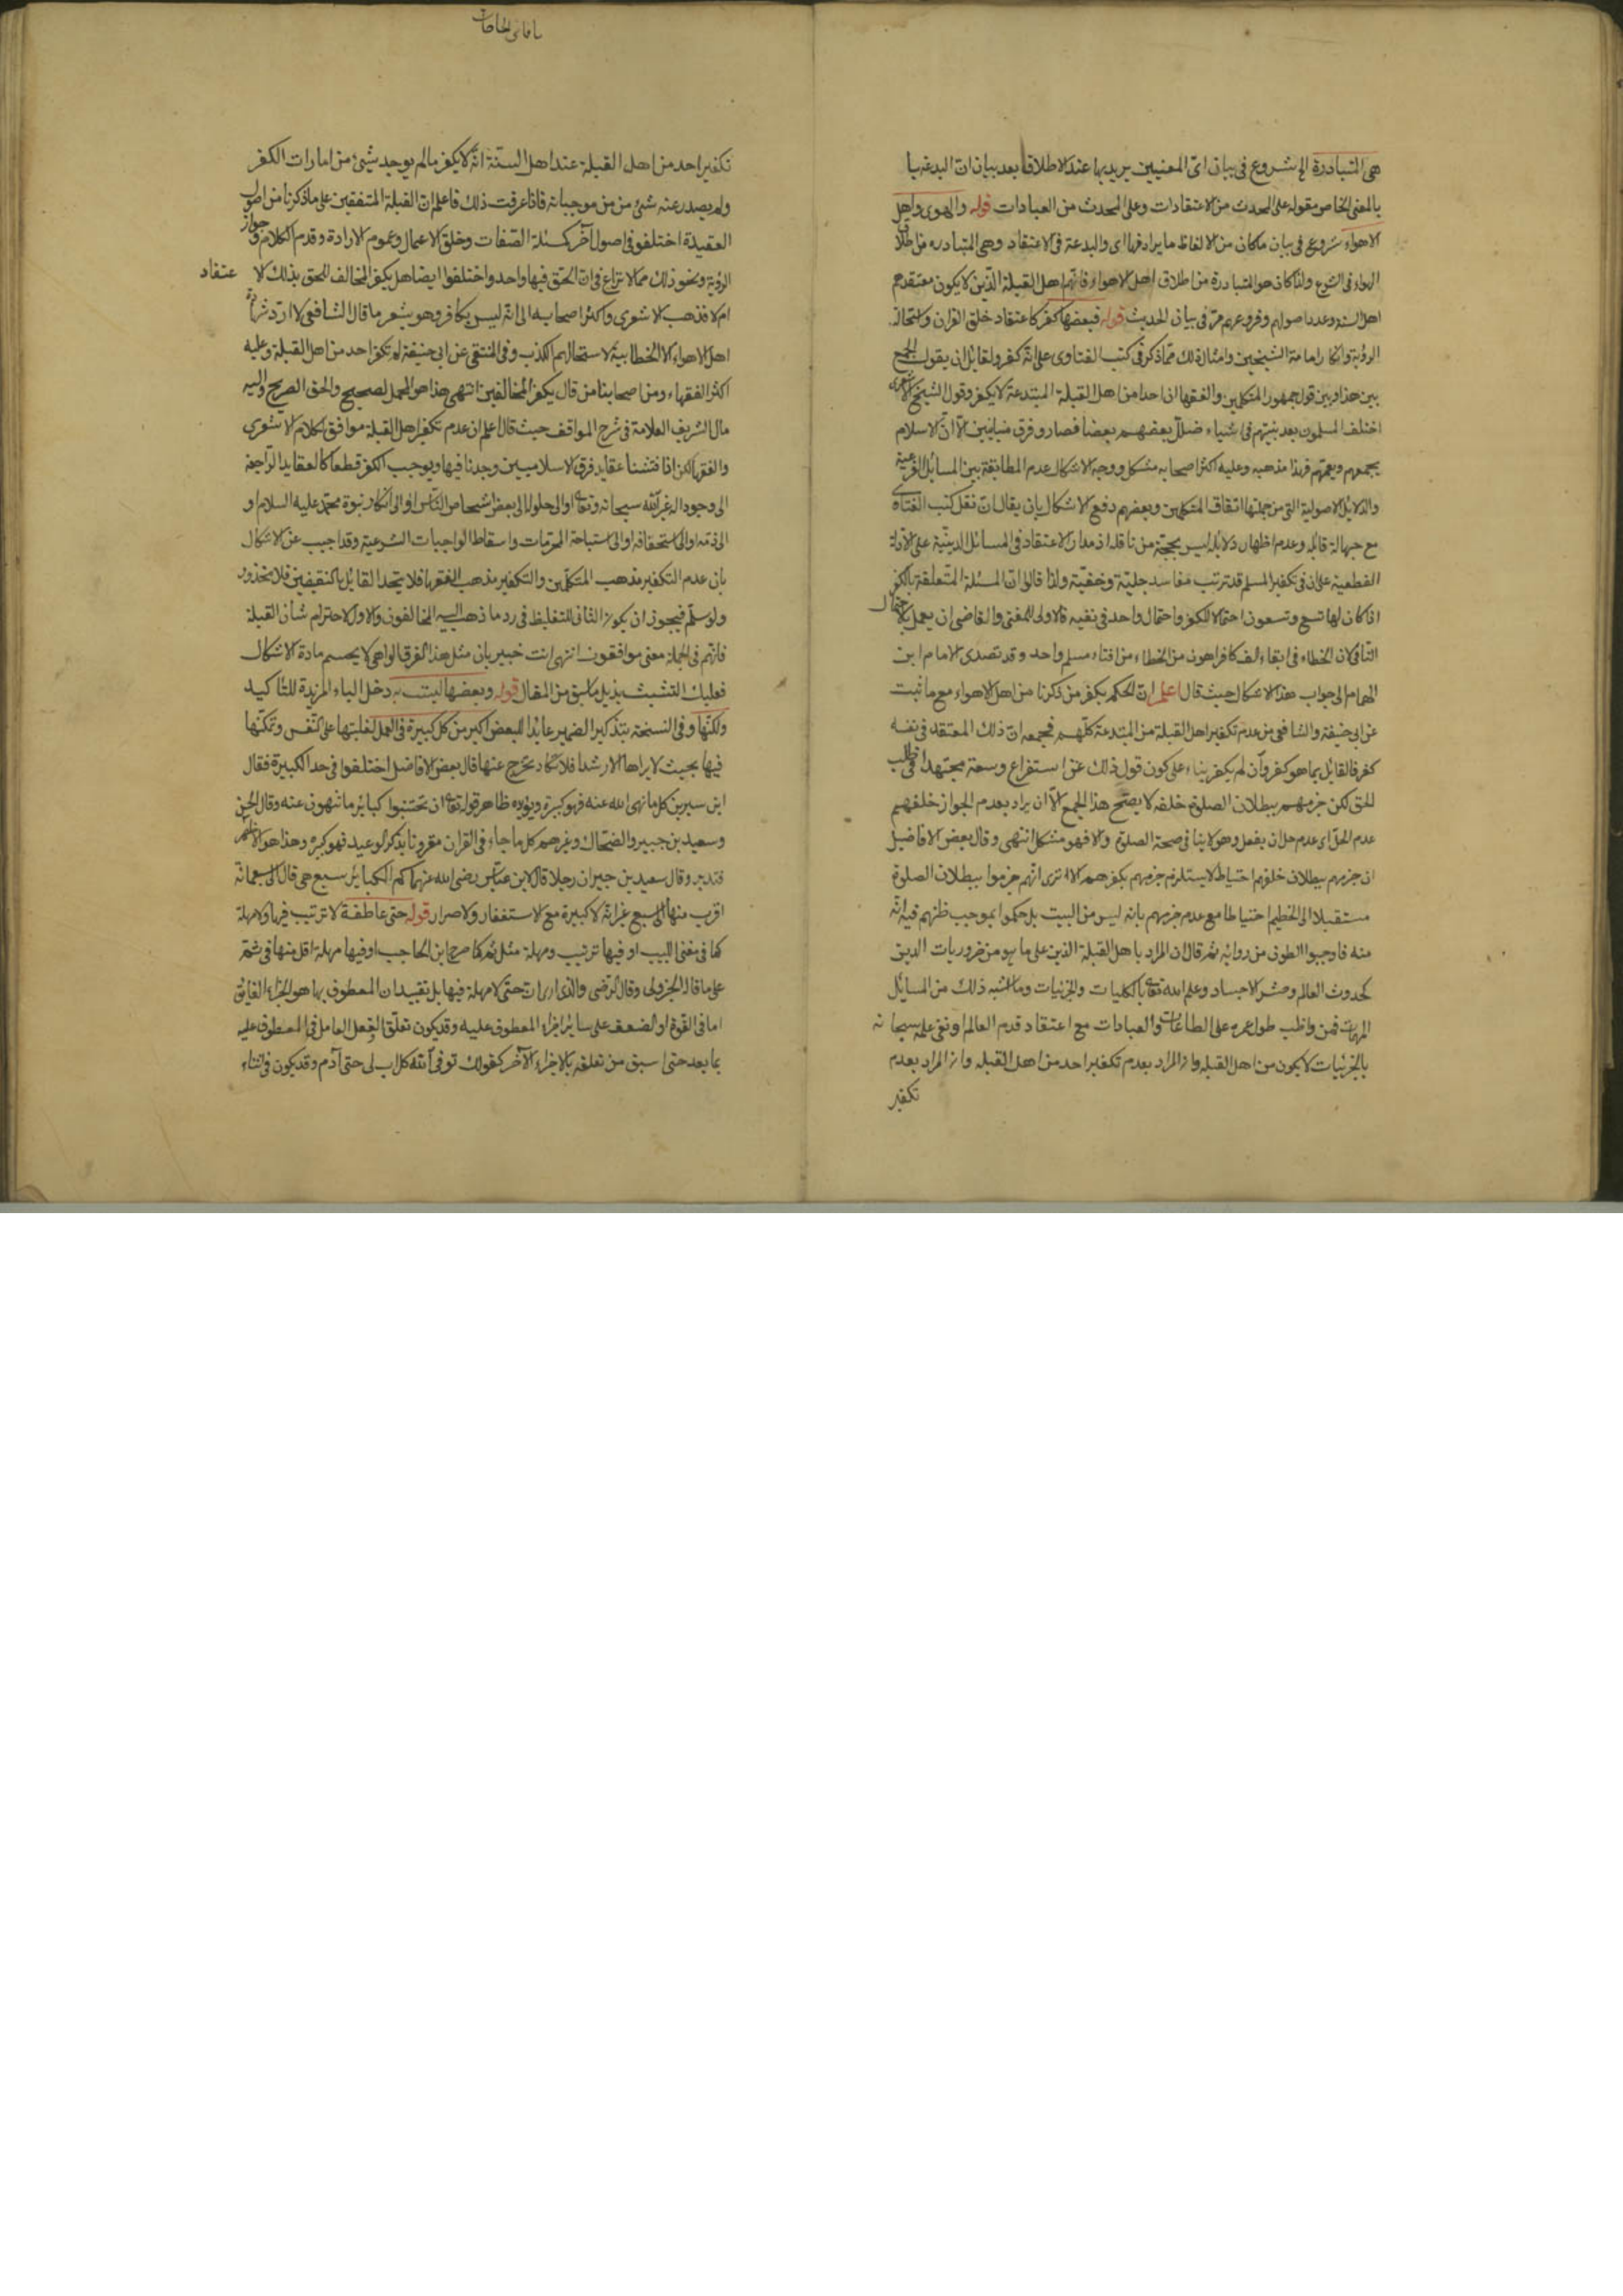 هي المتبادرة الخ شروع في بيان اىّ المعنيين يريد بها عند الاطلاق بعد بيان ان البدعة با
بالمعنى الخاص مقوله على المحدث من الاعتقادات وعلى المحدث من العبادات قوله والهوى واهل
الاهواء شروع في بيان ماكان من الالفاظ ما يرادفها اى والبدعة في الاعتقاد وهي المتبادره من اطلاق
الهواء في الشرع ولذا كان هو المتبادرة من اطلاق اهل الاهواء فانهم اهل القبلة الذين لا يكون معتقدهم
اهل السنة وعدد اصولهم وفروعهم مرّ في بيان الحديث قوله فبعضها كفر كاعتقاد خلق القران واستحالة
الرؤية وانكار امامة الشيخين وامثال ذلك مما ذكر في كتب الفتاوى على انه كفر ولقائل ان يقول الجمع
بين هذا وبين قول جمهور المتكلمين والفقها ان احدا من اهل القبلة المبتدعة لا يكفر وقول الشيخ الاشعرى
اختلف المسلمون بعد نبيّهم في اشياء ضلّل بعضهم بعضا فصاروا فرق متباينين الّا انّ الاسلام
يجمعهم ويعمّهم فهذا مذهبه وعليه اكثر اصحابه مشكل ووجه الاشكال عدم المطابقة بين المسائل الفرعية
والدلايل الاصولية التي من جملتها اتفاق المتكلمين وبعضهم دفع الاشكال بان يقال ان نقل كتب الفتاوى
مع جهالة قائله وعدم اظهار دلايله ليس بحجّة من ناقله اذ مدار الاعتقاد في المسائل الدينيّة على الادلة
القطعية على ان في تكفير المسلم قد ترتب مفاسد جليّة وخفيّة ولذا قالوا ان المسئلة المتعلقة بالكفر
اذا كان لها تسع وتسعون احتمالا للكفر واحتمال واحد في نفيه فالاولى للمفتي والقاضي ان يعمل بالاحتمال
الثاني لان الخطاء في ابقاء الف كافر اهون من الخطاء من افناء مسلم واحد وقد تصدى الامام ابن
الهمام الى جواب هذا الاشكال حيث قال اعلم ان الحكم بكفر من ذكرنا من اهل الاهواء مع ما ثبت
عن ابي حنيفة والشافعي من عدم تكفير اهل القبلة من المبتدعة كلّهم محمله ان ذلك المعتقد في نفسه
كفر فالقائل بما هو كفر وان لم يكفر بناء على كون قول ذلك عن استفراغ وسعة مجتهدا في طلب
الحق لكن جزمهم ببطلان الصلوة خلفه لا يصحّح هذا الجمع الّا ان يراد بعدم الجواز خلفهم
عدم الحلّ اى عدم حل ان يفعل وهو لا ينافي صحة الصلوة والا فهو مشكل انتهى وقال بعض الافاضل
ان جزمهم ببطلان خلفهم احتياطا لا يستلزم جزمهم بكفرهم الا ترى انّهم جزموا ببطلان الصلوة
مستقبلا الى الحطيم احتياطا مع عدم جزمهم بانه ليس من البيت بل حكموا بموجب ظنهم فيه انّه
منه فاوجبوا الطوف من روائه ثم قال ان المراد باهل القبلة الذين على ما هو من ضروريات الدين
كحدوث العالم وحشر الاجساد وعلم الله تعالى بالكليات والجزئيات وما اشبه ذلك من المسايل
المهمات فمن واظب طول عمره على الطاعات والعبادات مع اعتقاد قدم العالم ونفي علمه سبحانه
بالجزئيات لا يكون من اهل القبلة وان المراد بعدم تكفير احد من اهل القبلة وان المراد بعدم
تكفير
تكفير احد من اهل القبلة عند اهل السنّة انّه لا يكفر مالم يوجد شيئ من امارات الكفر
ولم يصدر عنه شئ من من موجباته فاذا عرفت ذلك فاعلم ان القبلة المتفقين على ما ذكرنا من اصول
العقيدة اختلفوا في اصول آخر كمسئلة الصّفات وخلق الاعمال وعموم الارادة وقدم الكلام وجواز
الرؤية ونحو ذلك ممّا لا نزاع في ان الحق فيها واحد واختلفوا ايضا هل يكفر المخالف للحق بذلك الاعتقاد
ام لا فذهب الاشعرى واكثر اصحابه الى انّه ليس بكافر وهو يشعر ما قال الشافعي لا اردّ شهادة
اهل الاهواء الا الخطابية لاستحلالهم الكذب وفي المنتقى عن ابي حنيفة لم تكفر احد من اهل القبلة وعليه
اكثر الفقهاء ومن اصحابنا من قال بكفر المخالفين انتهى هذا هو المحمل الصحيح والحق الصريح واليه
مال الشريف العلامة في شرح المواقف حيث قال اعلم ان عدم تكفير اهل القبلة موافق لكلام الاشعرى
والفقها لكن اذا فتشنا عقايد فرق الاسلاميين وجدنا فيها ويوجب الكفر قطعا كالعقايد الراجعة
الى وجود اله غير الله سبحانه وتعالى او الى حلوله الى بعض اشخاص النّاس او الى انكار نبوة محمّد عليه السلام او
الى ذمه او الى استخفافه او الى استباحة المحرّمات واسقاط الواجبات الشرعية وقد اجيب عن الاشكال
بان عدم التكفير مذهب المتكلّمين والتكفير مذهب الفقها فلا يتحد القايل بالنقيضين فلا محذور
ولو سلّم فيجوز ان يكون الثاني للتغليظ في رد ما ذهب اليه المخالفون والاول لاحترام شان القبلة
فانّهم في الجملة معنى موافقون انتهى انت خبير بان مثل هذا الفرق الواهي لا يحسم مادة الاشكال
فعليك التشبث بذيل ما سبق من المقال قوله وبعضها ليست به دخل الباء المزيدة للتأكيد
ولكنّها وفي النسخة بتذكير الضمير عايدا للبعض اكبر من كل كبيرة في العمل لغلبتها على النّفس وتمكّنها
فيها بحيث لا يراها الا رشدا فلا تكاد تخرج عنها قال بعض الافاضل اختلفوا في حد الكبيرة فقال
ابن سيرين كل ما نهى الله عنه فهو كبيرة ويؤيده ظاهر قوله تعالى ان تجتنبوا كبائر ما تنهون عنه وقال الحسن
وسعيد بن جبير والضحّاك وغيرهم كل ما جاء في القران مقرونا بذكر الوعيد فهو كبيرة وهذا هو الاظهر
فتدبر وقال سعيد بن جبير ان رجلا قال لابن عبّاس رضى الله عنهما كم الكبائر سبع هي قال الى سبعمائة
اقرب منها الى سبع غير انّه لا كبيرة مع الاستغفار ولا اصرار قوله حتى عاطفة لا ترتيب فيها ولا مهلة
كما في مغنى اللبيب او فيها ترتيب ومهلة مثل ثم كما صرح ابن الحاجب او فيها مهلة اقل منها في ثم
على ما قاله الجزولي وقال الرّضى والذى ارى ان حتّى لا مهلة فيها بل تفيد ان المعطوف بها هو الجزاء الفايق
اما في القوة او الضعف على ساير اجزاء المعطوف عليه وقد يكون تعلّق الفعل العامل في المعطوف عليه
بما بعد حتى اسبق من تعلقه بالاجزاء الآخر كقولك توفى الله كل اب لى حتى آدم وقد يكون في اثناء